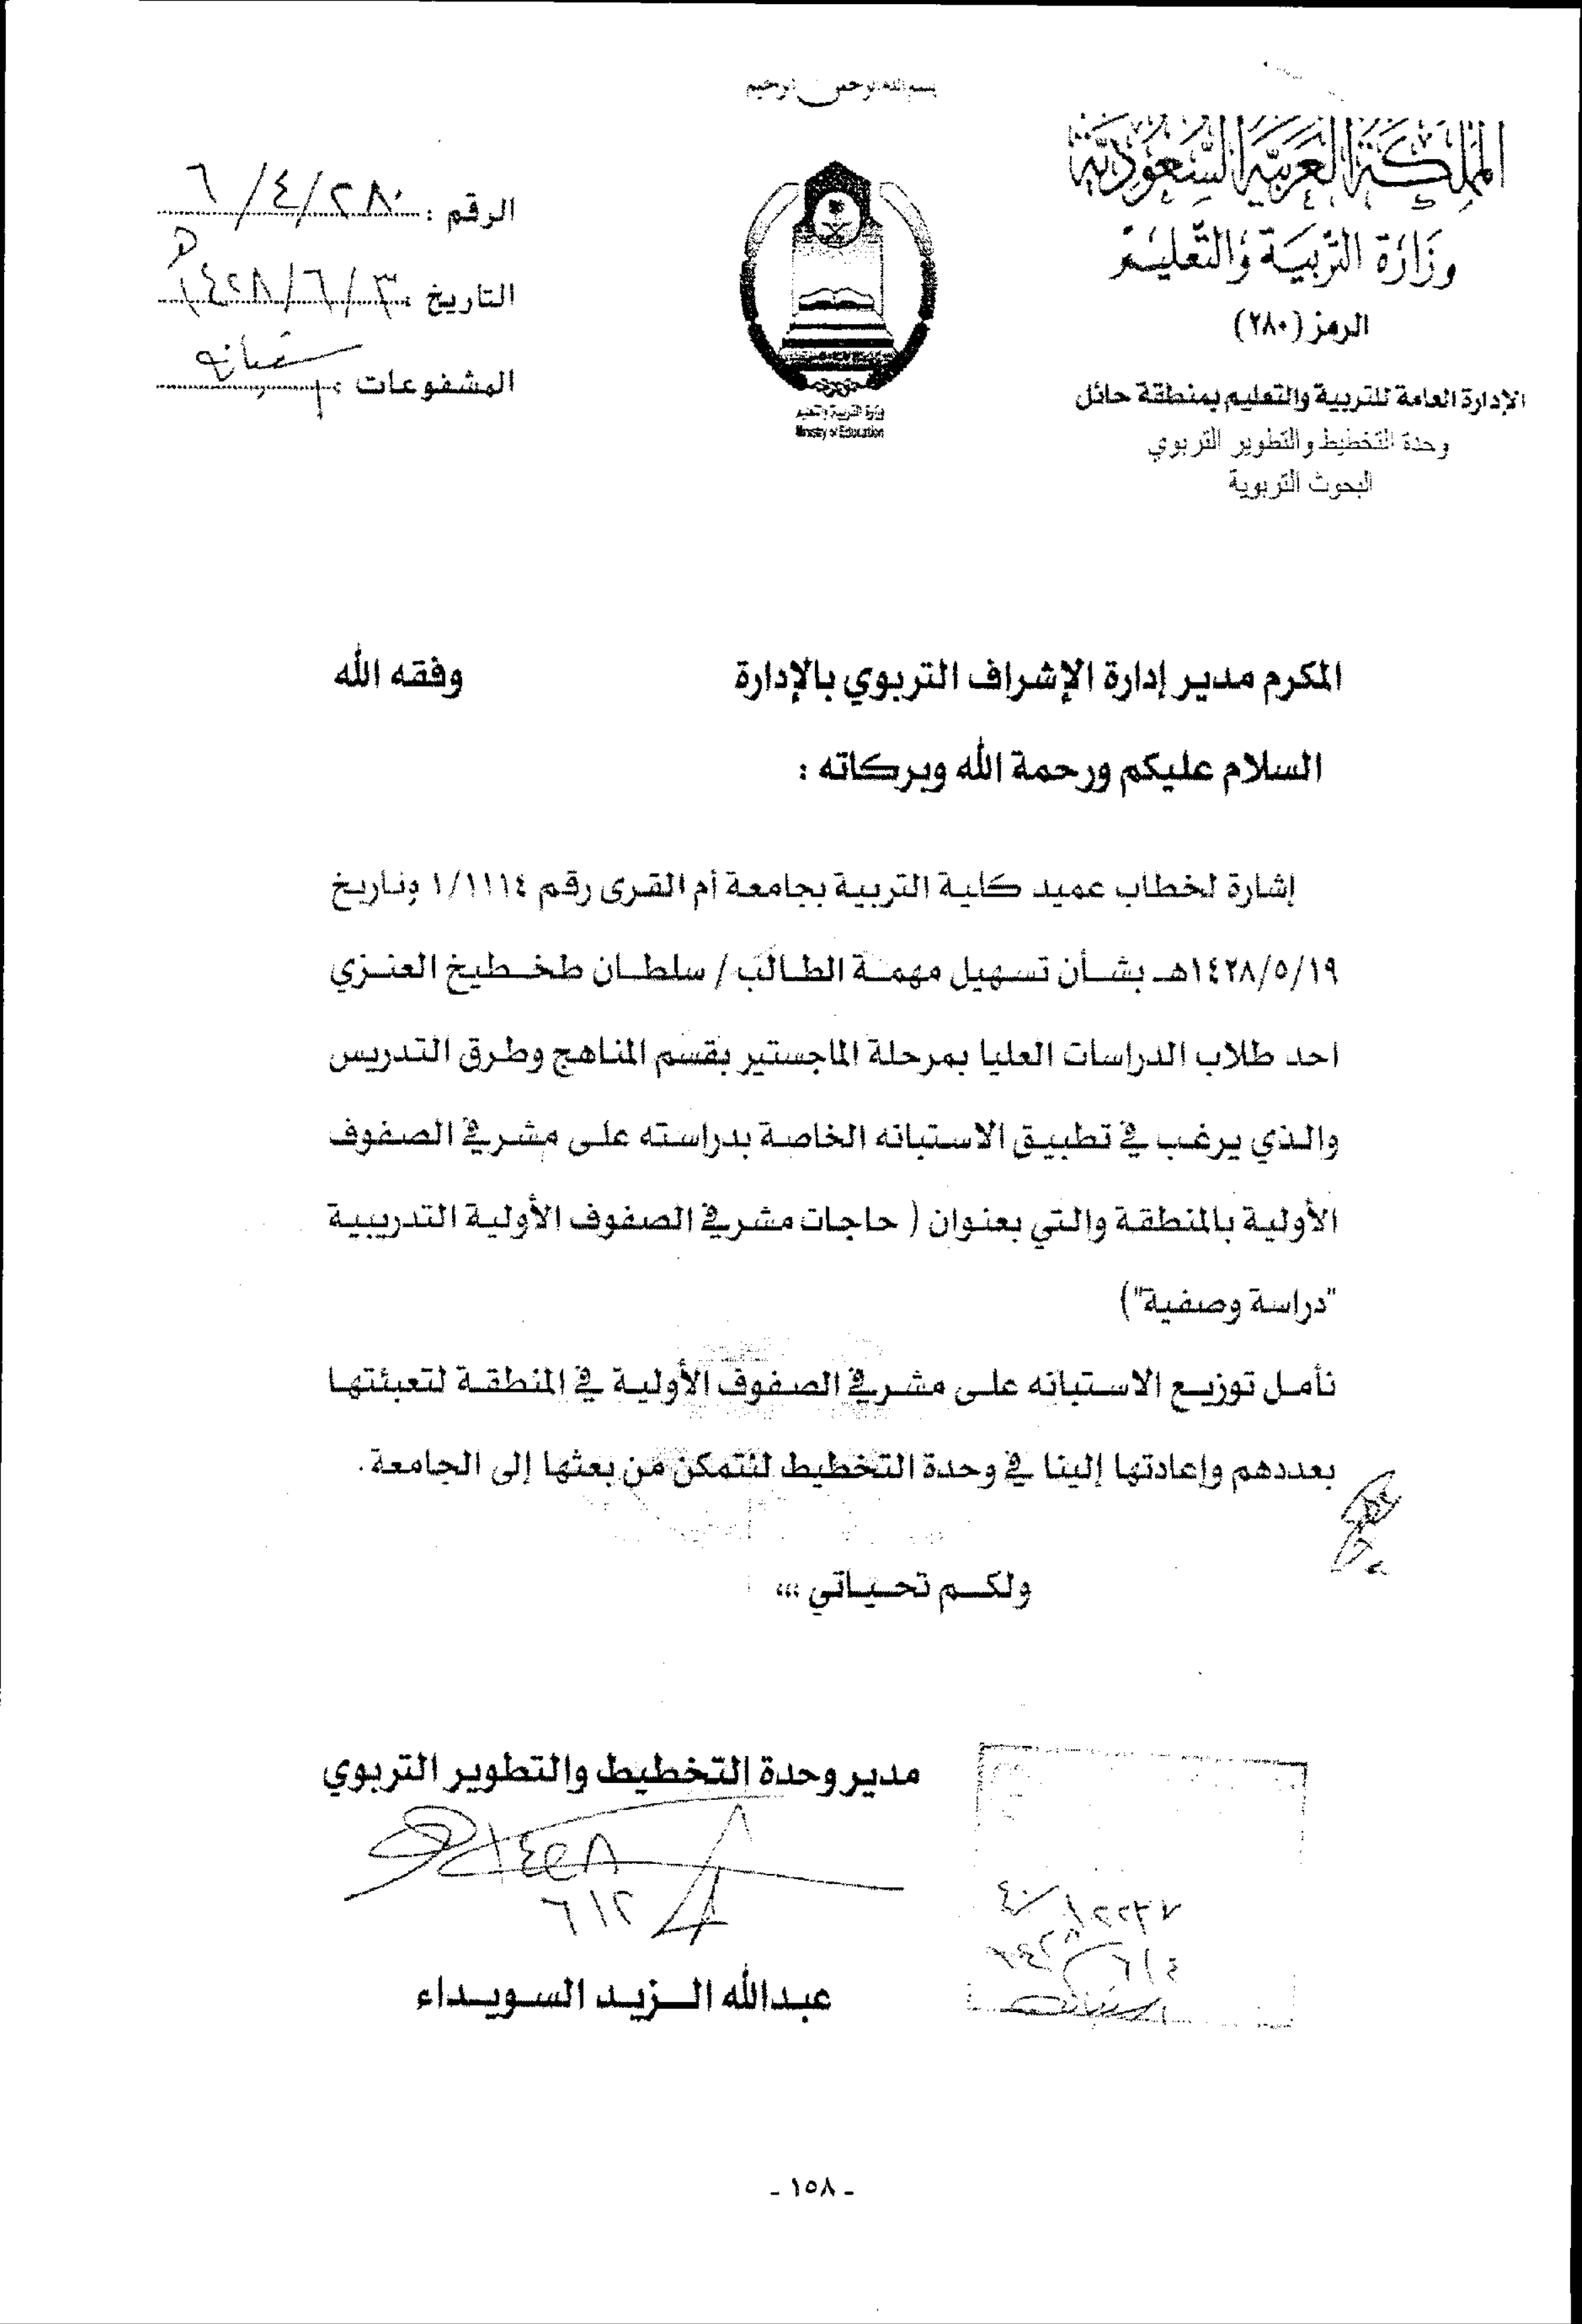 بسم الله الرحمن الرحيم
المملكة العربية السعودية
وزارة التربية والتعليم
الرمز (٢٨٠)
الإدارة العامة للتربية والتعليم بمنطقة حائل
وحدة التخطيط والتطوير التربوي
البحوث التربوية
وزارة التربية والتعليم
Ministry of Education
الرقم : ٦/٤/٢٨٠
التاريخ : ١٤٢٨/٦/٣ هـ
المشفوعات : استبانه
المكرم مدير إدارة الإشراف التربوي بالإدارة وفقه الله
السلام عليكم ورحمة الله وبركاته :
إشارة لخطاب عميد كلية التربية بجامعة أم القرى رقم ١/١١١٤ وتاريخ
١٤٢٨/٥/١٩هـ بشأن تسهيل مهمة الطالب / سلطان طخطيخ العنزي
احد طلاب الدراسات العليا بمرحلة الماجستير بقسم المناهج وطرق التدريس
والذي يرغب في تطبيق الاستبانه الخاصة بدراسته على مشرفي الصفوف
الأولية بالمنطقة والتي بعنوان ( حاجات مشرفي الصفوف الأولية التدريبية
"دراسة وصفية")
نأمل توزيع الاستبانه على مشرفي الصفوف الأولية في المنطقة لتعبئتها
بعددهم وإعادتها إلينا في وحدة التخطيط لنتمكن من بعثها إلى الجامعة .
ولكم تحياتي ،،،
مدير وحدة التخطيط والتطوير التربوي
١٤٢٨
٦/٢
عبدالله الزيد السويداء
- ١٥٨ -